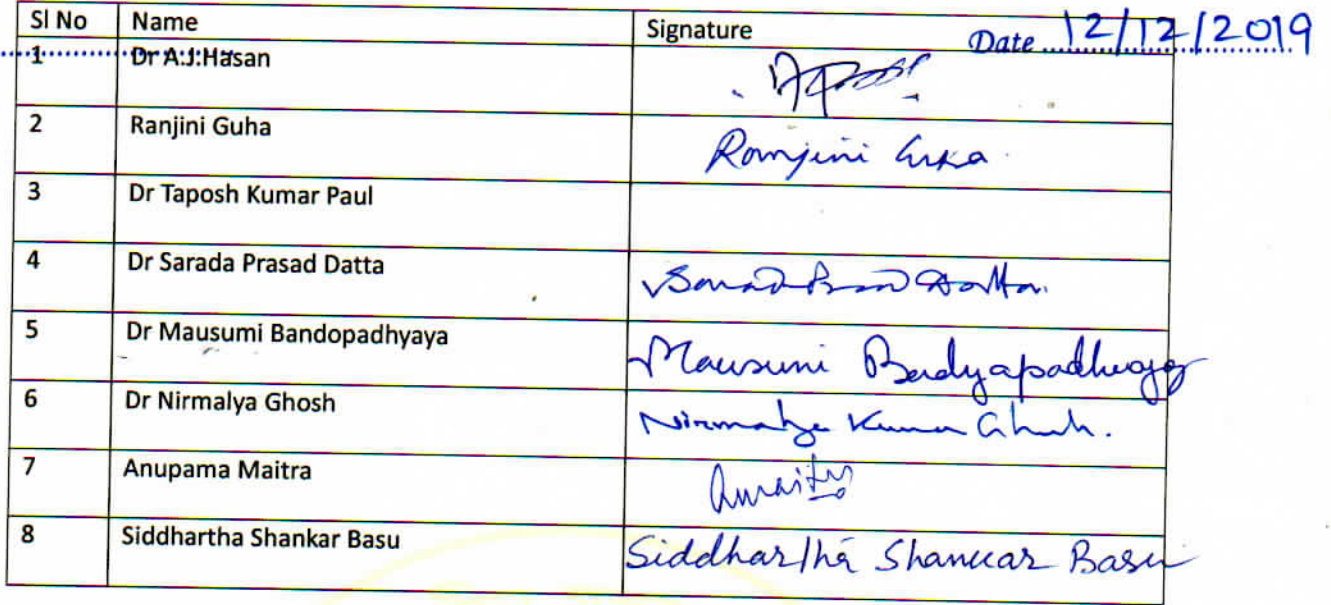 Sl No Name Signature Date 12/12/2019
1 Dr A.J.Hasan
2 Ranjini Guha Ranjini Guha
3 Dr Taposh Kumar Paul
4 Dr Sarada Prasad Datta Sarada Prasad Datta
5 Dr Mausumi Bandopadhyaya Mausumi Bandyapadhyay
6 Dr Nirmalya Ghosh Nirmalya Kumar Ghosh.
7 Anupama Maitra
8 Siddhartha Shankar Basu Siddhartha Shankar Basu